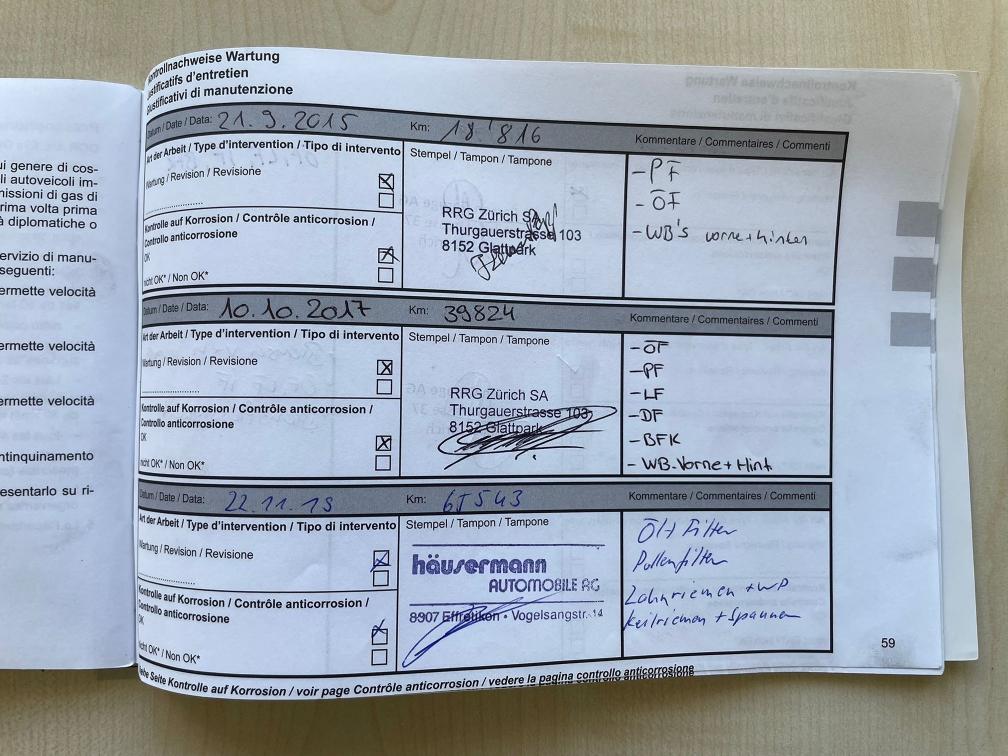 ui genere di cos-
li autoveicoli im-
nissioni di gas di
rima volta prima
à diplomatiche o
ervizio di manu-
seguenti:
ermette velocità
ermette velocità
ermette velocità
ntinquinamento
esentarlo su ri-
ontrollnachweise Wartung
ustificatifs d'entretien
Giustificativi di manutenzione
Datum / Date / Data: 21.9.2015 Km: 18'816 Kommentare / Commentaires / Commenti
Art der Arbeit / Type d'intervention / Tipo di intervento
Wartung / Revision / Revisione
Kontrolle auf Korrosion / Contrôle anticorrosion /
Controllo anticorrosione
OK
nicht OK* / Non OK*
Stempel / Tampon / Tampone
RRG Zürich SA
Thurgauerstrasse 103
8152 Glattpark
- PF
- ÖF
- WB's vorne + hinten
Datum / Date / Data: 10.10.2017 Km: 39824 Kommentare / Commentaires / Commenti
Art der Arbeit / Type d'intervention / Tipo di intervento
Wartung / Revision / Revisione
Kontrolle auf Korrosion / Contrôle anticorrosion /
Controllo anticorrosione
OK
nicht OK* / Non OK*
Stempel / Tampon / Tampone
RRG Zürich SA
Thurgauerstrasse 103
8152 Glattpark
- ÖF
- PF
- LF
- DF
- BFK
- WB.Vorne + Hint
Datum / Date / Data: 22.11.19 Km: 65543 Kommentare / Commentaires / Commenti
Art der Arbeit / Type d'intervention / Tipo di intervento
Wartung / Revision / Revisione
Kontrolle auf Korrosion / Contrôle anticorrosion /
Controllo anticorrosione
OK
nicht OK* / Non OK*
Stempel / Tampon / Tampone
häusermann
AUTOMOBILE AG
8307 Effretikon • Vogelsangstr. 14
Öl + Filter
Pollenfilter
Zahnriemen + WP
Keilriemen + Spannen
59
iehe Seite Kontrolle auf Korrosion / voir page Contrôle anticorrosion / vedere la pagina controllo anticorrosione